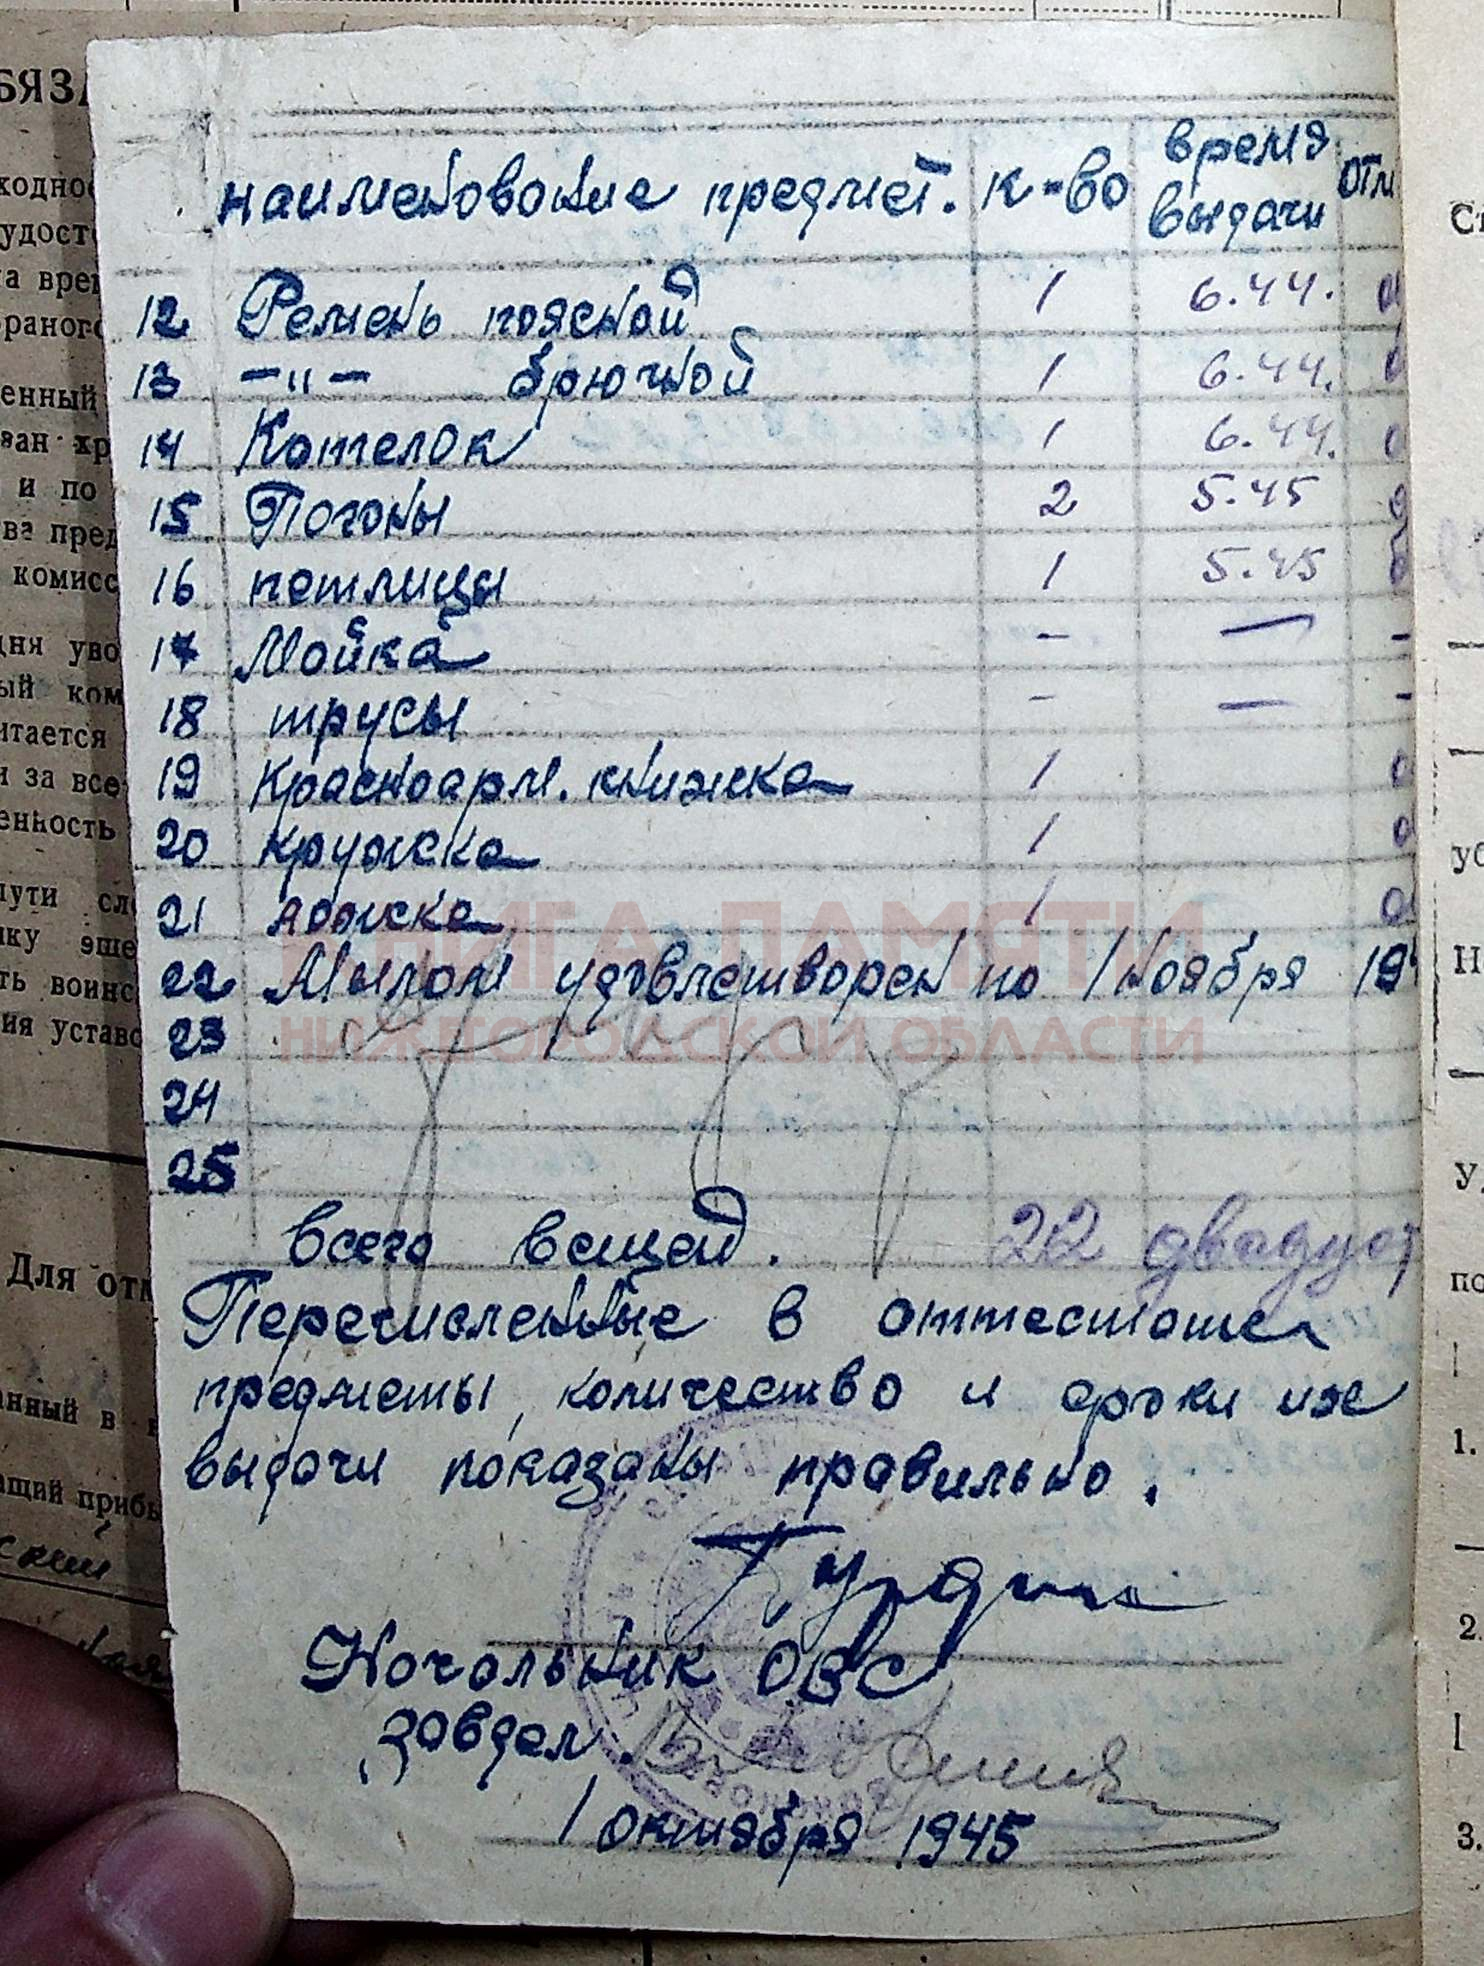 наименование предмет. к-во время выдачи отм
12 Ремень поясной 1 6.44.
13 —"— брючной 1 6.44.
14 Котелок 1 6.44.
15 Погоны 2 5.45
16 петлицы 1 5.45
17 Майка - — -
18 трусы - — -
19 Красноарм. книжка 1
20 кружка 1
21 ложка 1
КНИГА ПАМЯТИ
22 Мылом удовлетворен по 1 ноября 194
НИЖЕГОРОДСКОЙ ОБЛАСТИ
23
24
25
всего вещей. 22 двадцат
Перечисленные в аттестате
предметы, количество и сроки их
выдачи показаны правильно.
Начальник ОВС
завдел.
1 октября 1945
БЯЗА
ходно
удост
на врем
раного
енный
ван хр
и по
ва пред
комисс
дня уво
ый ком
итается
и за все
енность
пути сл
ику эше
ть воинс
ия уставо
Для отм
анный в
ащий прибы
Ст
уб
Н
У
по
1.
2.
3.